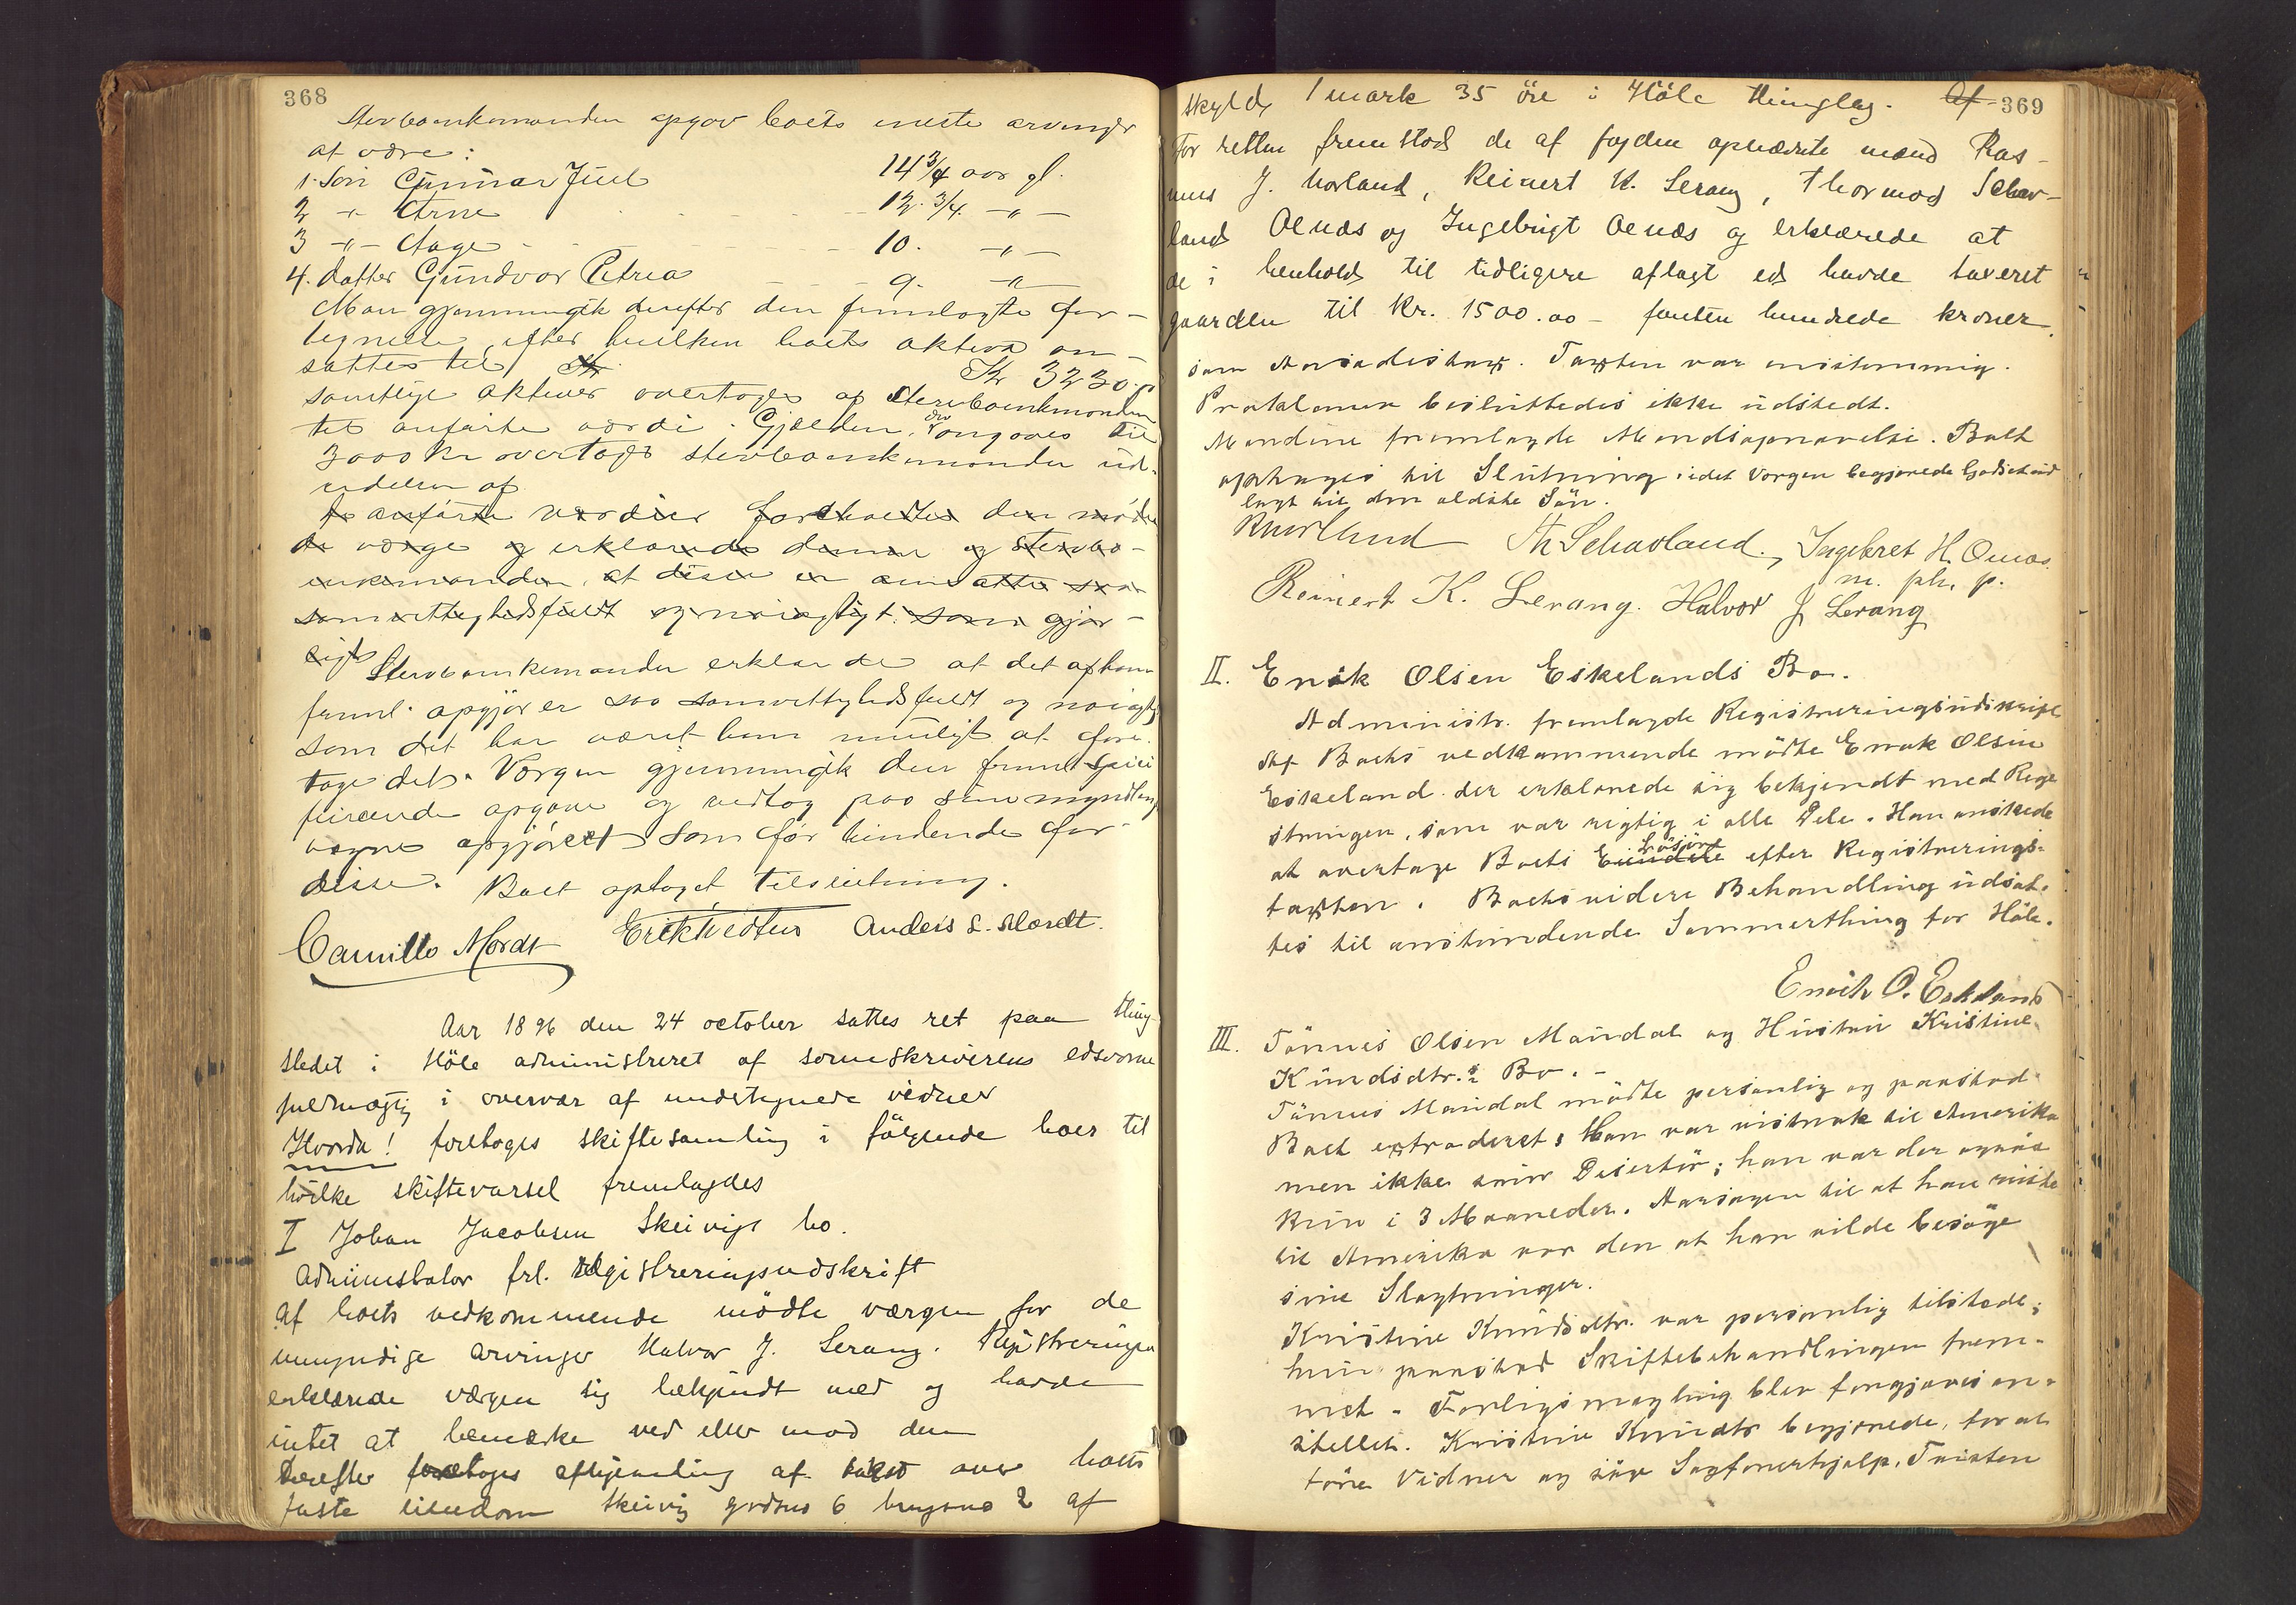 368
Stervboenkemanden opgav boets eneste arvinger
at være:
1. Søn Gunnar Juel 14 3/4 aar gl.
2 -"- Arne 12 3/4 -"-
3 -"- Aage 10. -"-
4. datter Gundvor Petrea 9. -"-
Man gjennemgik derefter den fremlagte for-
tegnelse, efter hvilken boets aktiva an-
sattes til Kr Kr 3230.
samtlige aktiver overtoges af Stervboenkmanden
til anførte værdi. Gjælden, der angaves til
3000 Kr overtoges stervboenkemanden ud-
redelsen af
de anførte værdier foreholdtes den mødte
de værge og erklærede denne og stervbo-
enkemanden, at disse er ansatte saa
samvittighedsfuldt og nøiagtigt som gjør-
ligt
Stervboenkemanden erklærede at det af ham
freml. opgjør er saa samvittighedsfuldt og nøiagtig
som det har været ham muligt at fore-
tage det. Værgen gjennemgik den freml. speci
ficerende opgave og vedtog paa sine myndlinges
vegne opgjøret som før bindende for
disse. Boet optoget til slutning.
Camillo Mordt Erik Tvedten Anders L. Mordt.
Aar 1896 den 24 october sattes ret paa thing-
stedet i Höle administreret af sorenskriverens edsvorne
fuldmægtig i overvær af undertegnede vidner
Hvorda! foretoges skiftesamling i følgende boer til
hvilke skiftevarsel fremlagdes
I Johan Jacobsen Skeivigs bo.
Administrator frl. registreringsudskrift
Af boets vedkommende mödte værgen for de
umyndige arvinger Halvor J. Lerang. Registreringen
erklærede værgen sig bekjendt med og havde
intet at bemærke ved eller mod den
Derefter foretoges afhjemling af takst over boets
faste eiendom Skeivig gardsno 6 brugsno 2 af
skyld 1 mark 35 öre i Höle thinglag. Af 369
For retten fremstod de af fogden opnævnte mænd Ras-
mus J. Norland, Reinert K. Lerang, Thormod Schav-
land Oenæs og Ingebrigt Oenæs og erklærede at
de i henhold til tidligere aflagt ed havde taxeret
gaarden til Kr. 1500.00 - femten hundrede kroner.
som Aasædestaxt. Taxten var enstemmig.
Proklama besluttedes ikke udstedt.
Mændene fremlagde Mandsopnævelse. Boet
optoges til Slutning idet Værgen begjærede Godset ud
lagt til den ældste Søn.
Th Schavland. Ingebret H. Oenæs
m. ph. p.
Reinert K. Lerang. Halvor J Lerang
II. Enok Olsen Eskelands Bo.
Administr. fremlagde Registreringsudskrift
Af Boets vedkommende mödte Enok Olsen
Eskeland der erklærede sig bekjendt med Regi
streringen, som var rigtig i alle Dele. Han önskede
at overtage Boets Eiendele Løsøre efter Registrerings-
taxten. Boets videre Behandling udsat-
tes til anstundende Sommerthing for Höle.
Enoch O. Eskeland
III. Tönnes Olsen Maudal og Hustru Kristine
Knudsdtr.s Bo. -
Tönnes Maudal mödte personlig og paastod
Boet extraderet; Han var vistnok til Amerika
men ikke som Desertör; han var der ogsaa
kun i 3 Maaneder. Aarsagen til at han reiste
til Amerika var den at han vilde besöge
sine Slægtninger.
Kristine Knudsdtr. var personlig tilstede;
hun paastod Skiftebehandlingen frem-
met. Forligsmægling blev forgjæves an-
stillet. Kristine Knudsdtr begjærede, for at
före Vidner og søge Sagførerhjælp, Tvisten